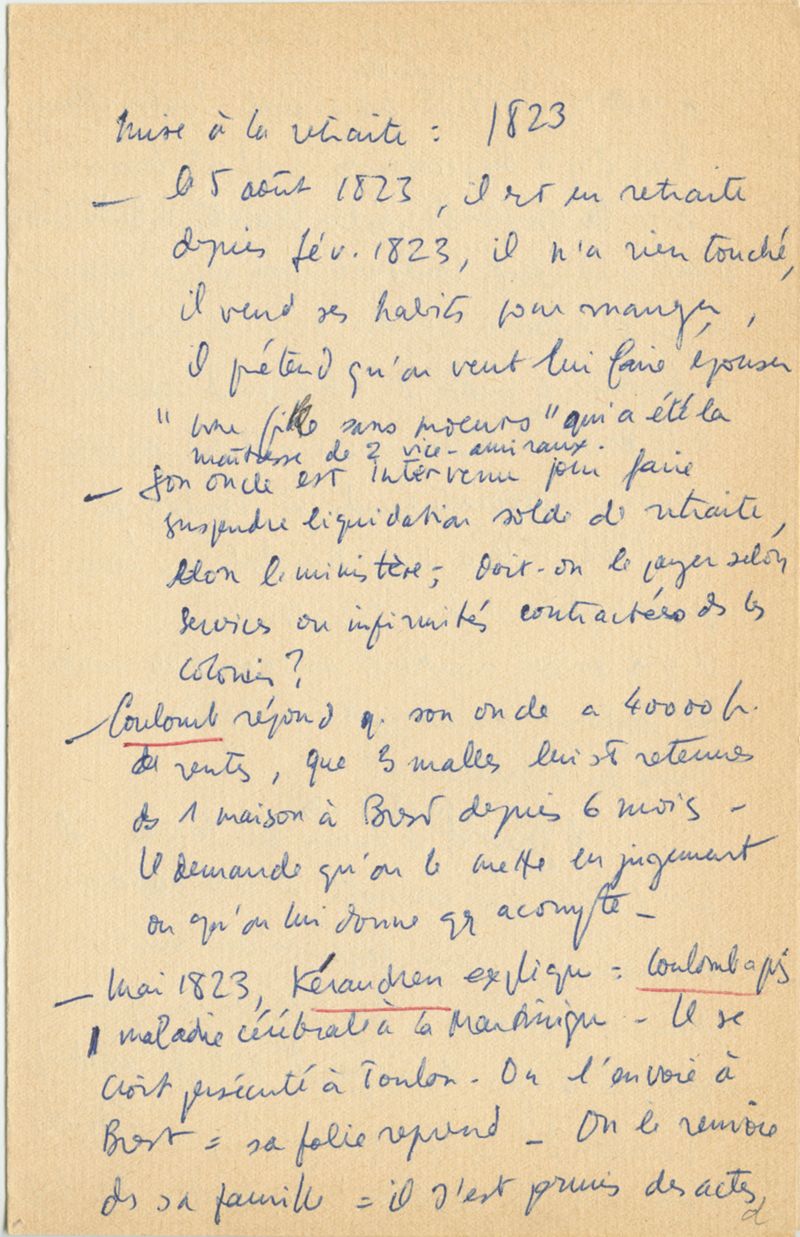 Mise à la retraite = 1823
— le 5 août 1823, il est en retraite
depuis fév. 1823, il n'a rien touché,
il vend ses habits pour manger,
il prétend qu'on veut lui faire épouser
"une fille sans moeurs" qui a été la
maîtresse de 2 vice-amiraux.
— Son oncle est intervenu pour faire
suspendre liquidation solde de retraite,
selon le ministère; doit-on le payer selon
services ou infirmités contractées ds les
colonies?
— Coulomb répond q. son oncle a 40000 fr.
de rentes, que 3 malles lui st retenues
ds 1 maison à Brest depuis 6 mois –
Il demande qu'on le mette en jugement
ou qu'on lui donne qq acompte –
— Mai 1823, Kérandren explique = Coulomb a pris
1 maladie cérébrale à la Martinique – Il se
croit persécuté à Toulon – On l'envoie à
Brest = sa folie reprend – On le renvoie
ds sa famille = il s'est permis des actes
d